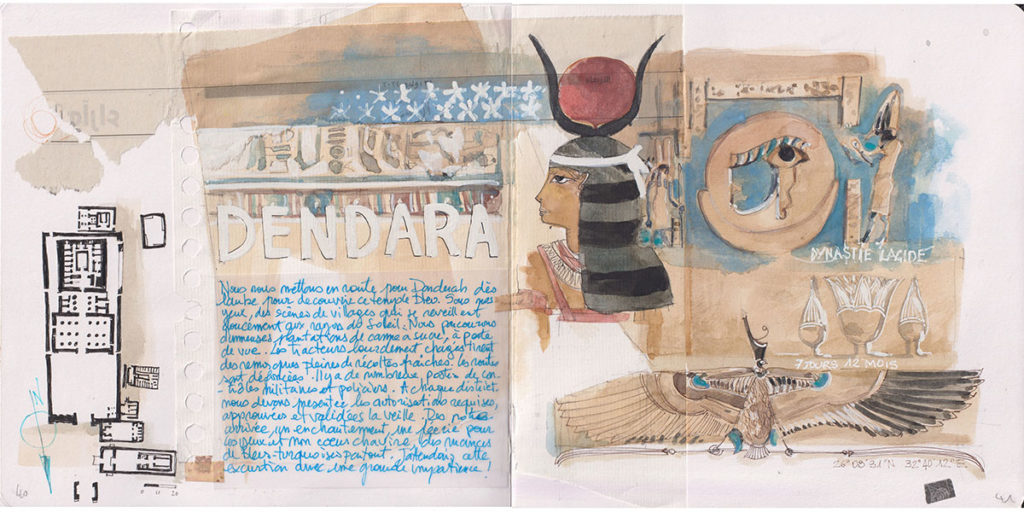 DENDARA
Nous nous mettons en route pour Denderah dès
l'aube pour découvrir ce temple Dieu. Sous mes
yeux, des scènes de villages qui se réveillent
doucement aux rayons du Soleil. Nous parcourons
d'immenses plantations de canne à sucre, à perte
de vue. Les tracteurs lourdement chargés tirent
des remorques pleines de récoltes fraîches. Les routes
sont
Il y a de nombreux postes de con-
trôles militaires et policiers. A chaque district,
nous devons présenter les autorisations requises,
approuvées et validées la veille. Dès notre
arrivée, un enchantement, une féerie pour
les yeux et mon coeur chavire. Des nuances
de bleus-turquoises partout. J'attendais cette
excursion avec une grande impatience !
N
0 10 20
40
DYNASTIE LAGIDE
7 JOURS 12 MOIS
26°08'31"N 32°40'12"E
41